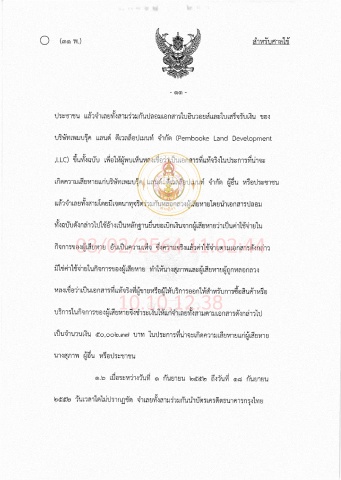 (๓๑ พ.)
สำหรับศาลใช้
- ๑๑ -
ประชาชน แล้วจำเลยทั้งสามร่วมกันปลอมเอกสารใบอินวอยส์และใบเสร็จรับเงิน ของ
บริษัทเพมบรุ๊ค แลนด์ ดีเวลล็อปเมนท์ จำกัด (Pembooke Land Development
,LLC) ขึ้นทั้งฉบับ เพื่อให้ผู้พบเห็นหลงเชื่อว่าเป็นเอกสารที่แท้จริงในประการที่น่าจะ
เกิดความเสียหายแก่บริษัทเพมบรุ๊ค แลนด์ ดีเวลล็อปเมนท์ จำกัด ผู้อื่น หรือประชาชน
แล้วจำเลยทั้งสามโดยมีเจตนาทุจริตร่วมกันหลอกลวงผู้เสียหายโดยนำเอกสารปลอม
ทั้งฉบับดังกล่าวไปใช้อ้างเป็นหลักฐานยื่นขอเบิกเงินจากผู้เสียหายว่าเป็นค่าใช้จ่ายใน
กิจการของผู้เสียหาย อันเป็นความเท็จ ซึ่งความจริงแล้วค่าใช้จ่ายตามเอกสารดังกล่าว
มิใช่ค่าใช้จ่ายในกิจการของผู้เสียหาย ทำให้นางสุภาพและผู้เสียหายผู้ถูกหลอกลวง
หลงเชื่อว่าเป็นเอกสารที่แท้จริงที่ผู้ขายหรือผู้ให้บริการออกให้สำหรับการซื้อสินค้าหรือ
10.10.12.38
บริการในกิจการของผู้เสียหายจึงชำระเงินให้แก่จำเลยทั้งสามตามเอกสารดังกล่าวไป
เป็นจำนวนเงิน บาท ในประการที่น่าจะเกิดความเสียหายแก่ผู้เสียหาย
นางสุภาพ ผู้อื่น หรือประชาชน
๑.๖ เมื่อระหว่างวันที่ ๑ กันยายน ๒๕๕๒ ถึงวันที่ ๑๘ กันยายน
๒๕๕๒ วันเวลาใดไม่ปรากฏชัด จำเลยทั้งสามร่วมกันนำบัตรเครดิตธนาคารกรุงไทย